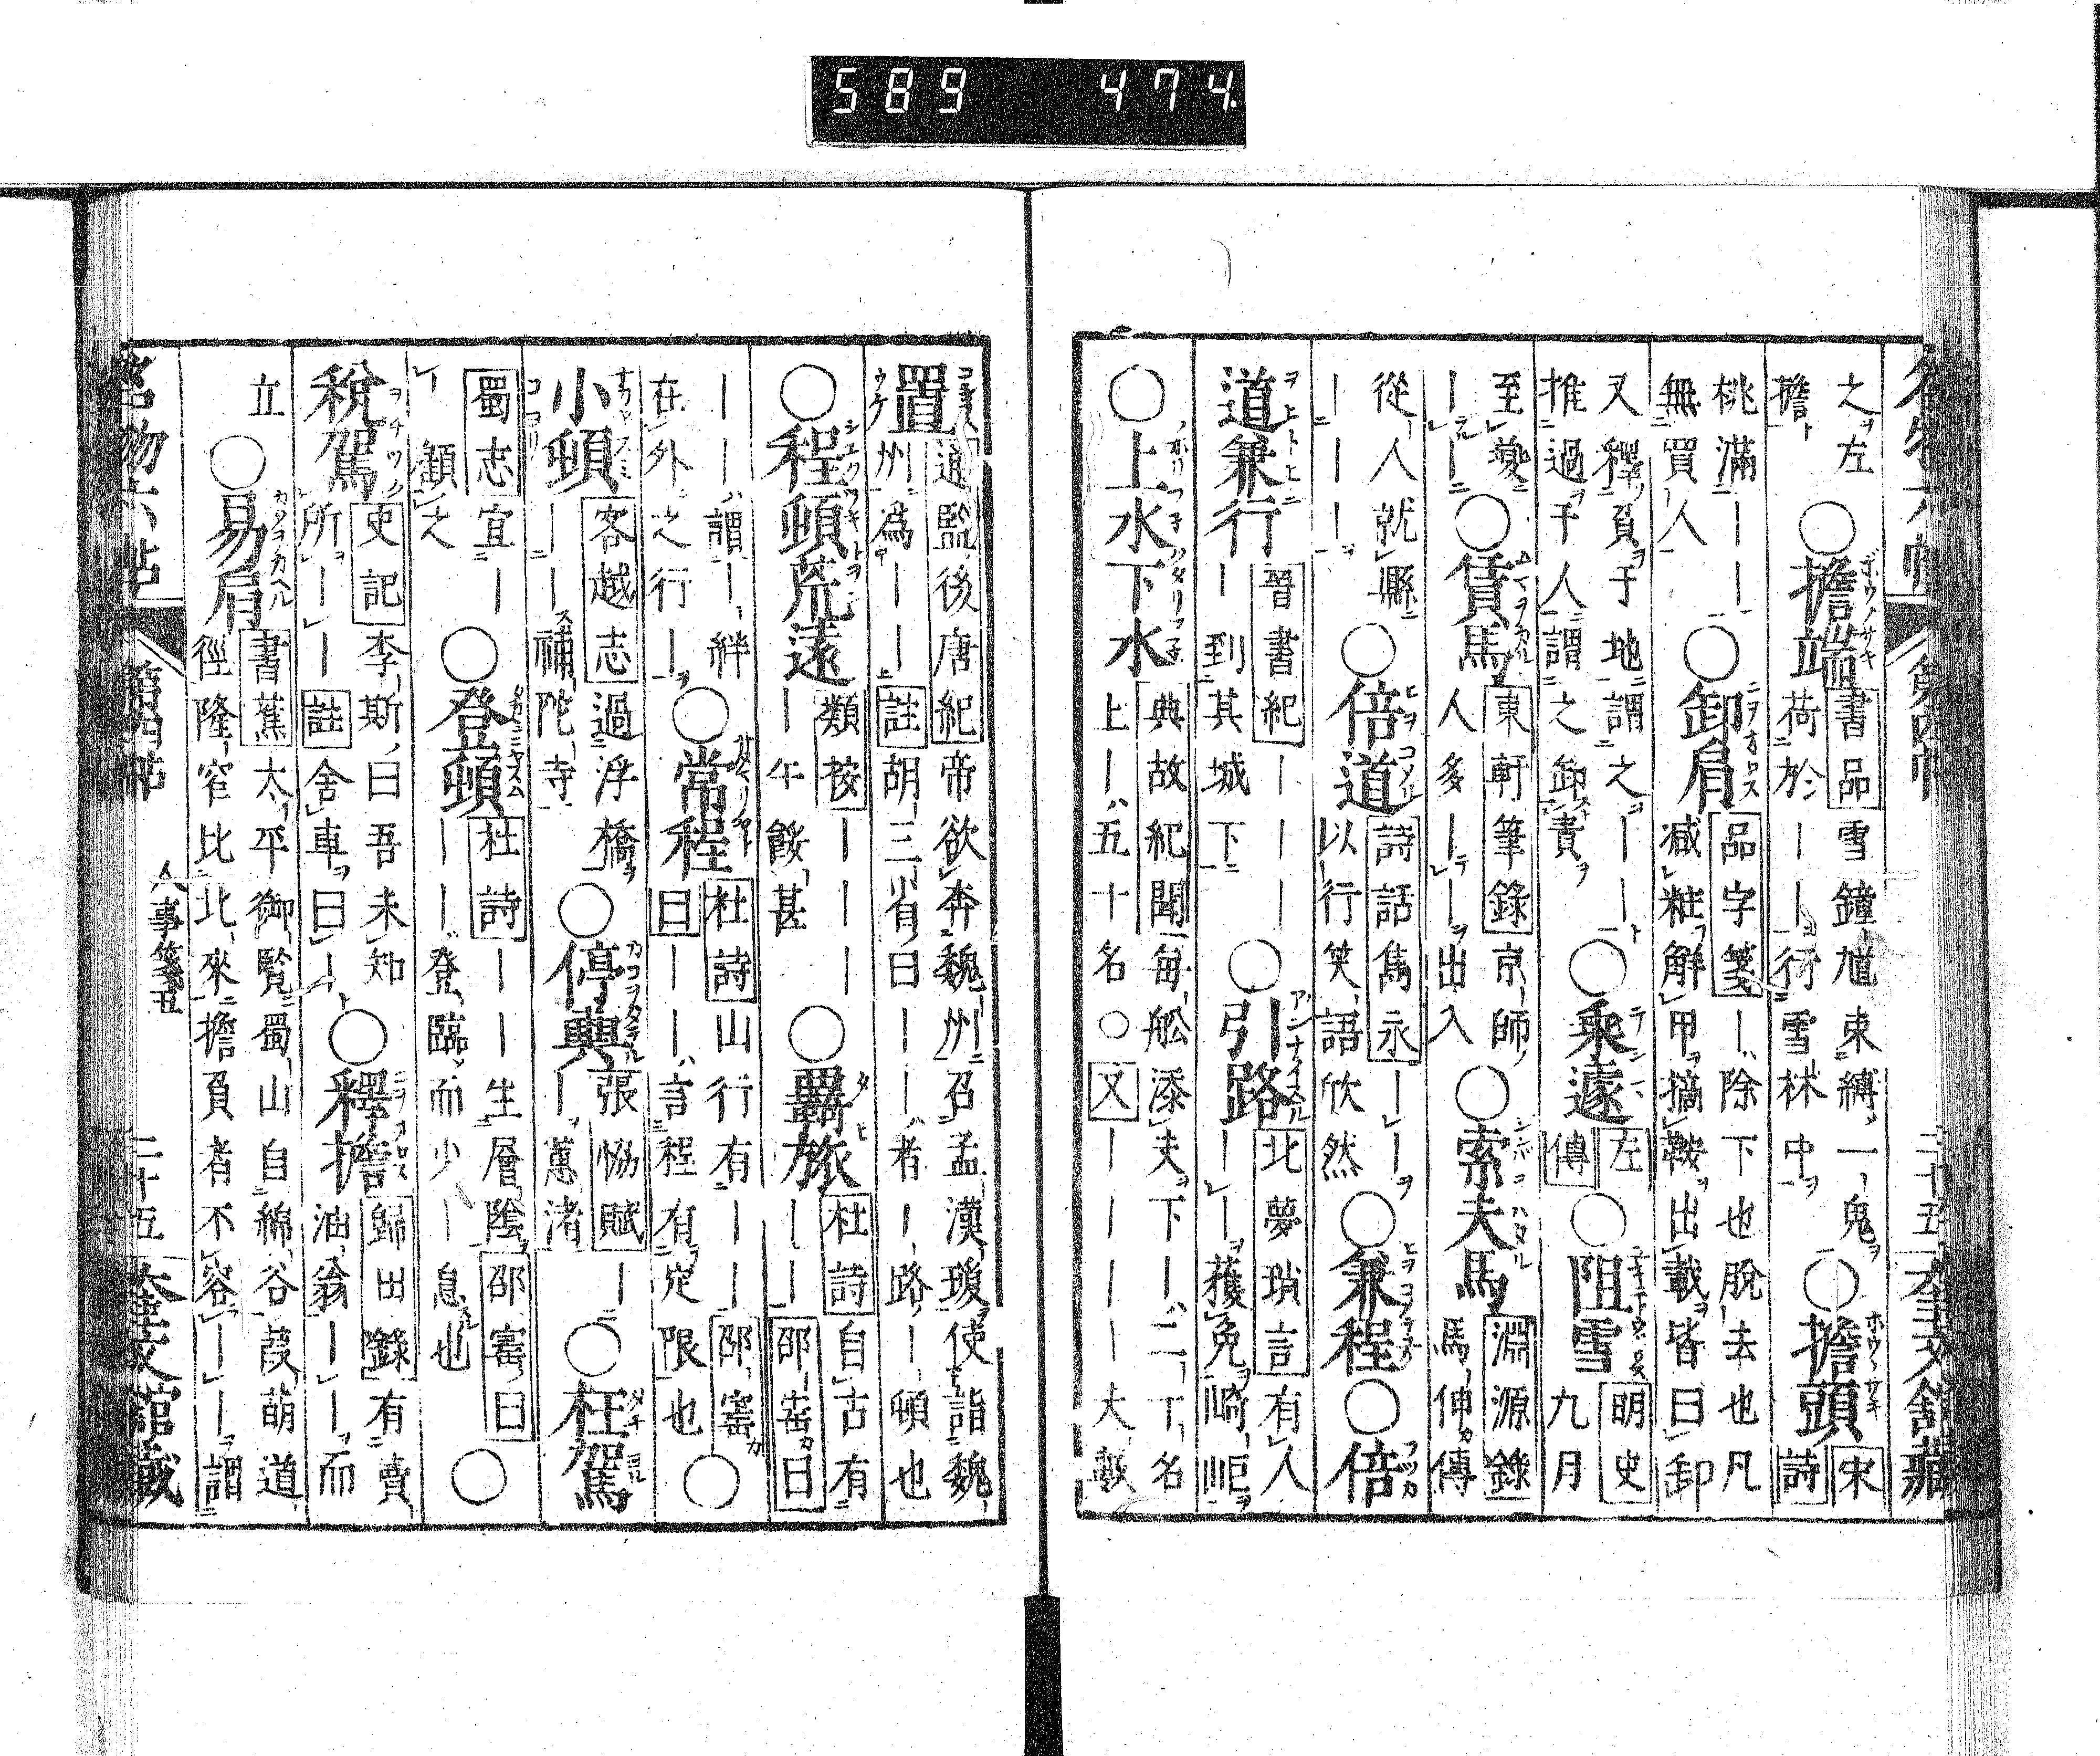 589 474.
名物六帖 第四帖 二十五 奎文館藏
之左
擔 ○擔端 書品雪鐘馗束縛一鬼
荷於——行雪林中 ○擔頭 宋
詩
桃滿——
無買人 ○卸肩 品字箋—除下也脫去也凡
減粧解甲摘鞍出載皆曰卸
又釋負于地謂之——
推過于人謂之卸責 ○乘遽 左
傳 ○阻雪 明史
九月
至夔
—— ○賃馬 東軒筆錄京師
人多——出入 ○索夫馬 淵源錄
馬伸傳
從人就縣
———— ○倍道 詩話雋永——
以行笑語欣然 ○兼程 ○倍
道兼行 晉書紀————
到其城下 ○引路 北夢瑣言有人
——獲免崎岖
○上水下水 典故紀聞每舩添夫下—二丁名
上—五十名○又————夫數
置 通鑑後唐紀帝欲奔魏州召孟漢瓊使詣魏
州爲—— 註胡三省曰——者—路—頓也
○程頓荒遠 類按————
—午餒甚 ○羈旅 杜詩自古有
—— 邵寚曰
———謂—絆
在外之行— ○常程 杜詩山行有—— 邵寚
曰——言程有定限也 ○
小頓 客越志過浮橋
——補陀寺 ○停輿 張協賦—
—蕙渚 ○枉駕
蜀志宜—
—顧之 ○登頓 杜詩——生層陰 邵寚曰
——登臨而少—息也 ○
稅駕 史記李斯曰吾未知
所—— 註舍車曰— ○釋擔 歸田錄有賣
油翁——而
立 ○易肩 書蕉太平御覽蜀山自綿谷葭萌道
徑隆窄比北來擔負者不容——謂
名物六帖 第四帖 人事箋五 二十五 奎文館藏